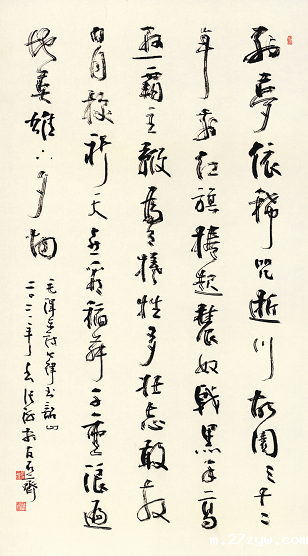 別夢依稀咒逝川故園三十二
年前红旗捲起農奴戟黑手高
悬霸主鞭為有犧牲多壮志敢教
日月换新天喜看稻菽千重浪遍
地英雄下夕烟
毛泽东诗七律到韶山
二〇一一年